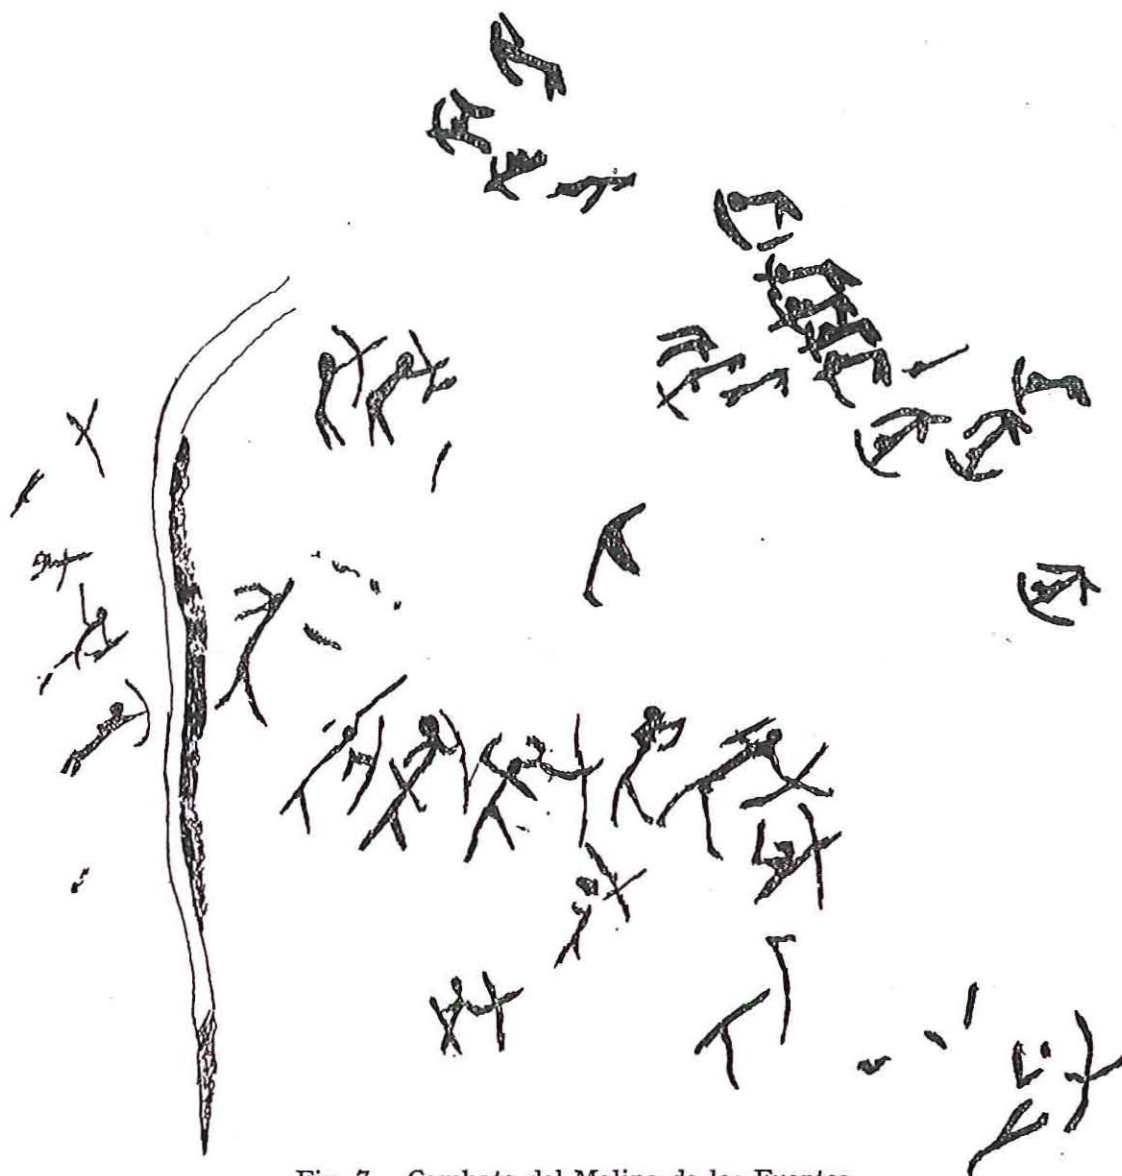 Fig. 7.—Combate del Molino de las Fuentes